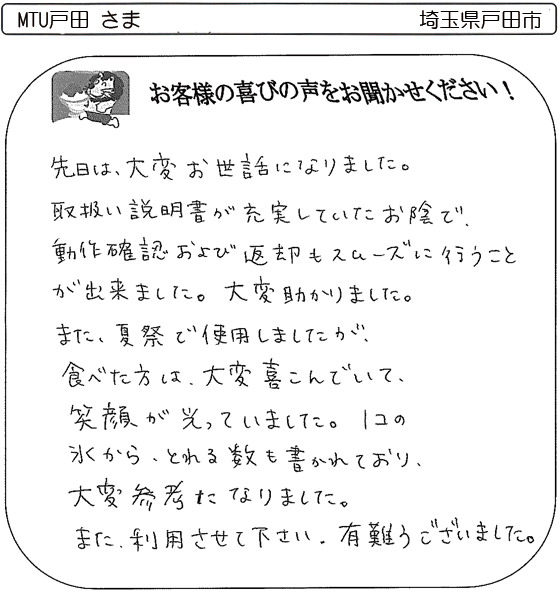 MTU戸田 さま 埼玉県戸田市
お客様の喜びの声をお聞かせください！
先日は、大変お世話になりました。
取扱い説明書が充実していたお陰で、
動作確認および返却もスムーズに行うこと
が出来ました。大変助かりました。
また、夏祭で使用しましたが、
食べた方は、大変喜こんでいて、
笑顔が光っていました。1コの
氷から、とれる数も書かれており、
大変参考になりました。
また、利用させて下さい。有難うございました。